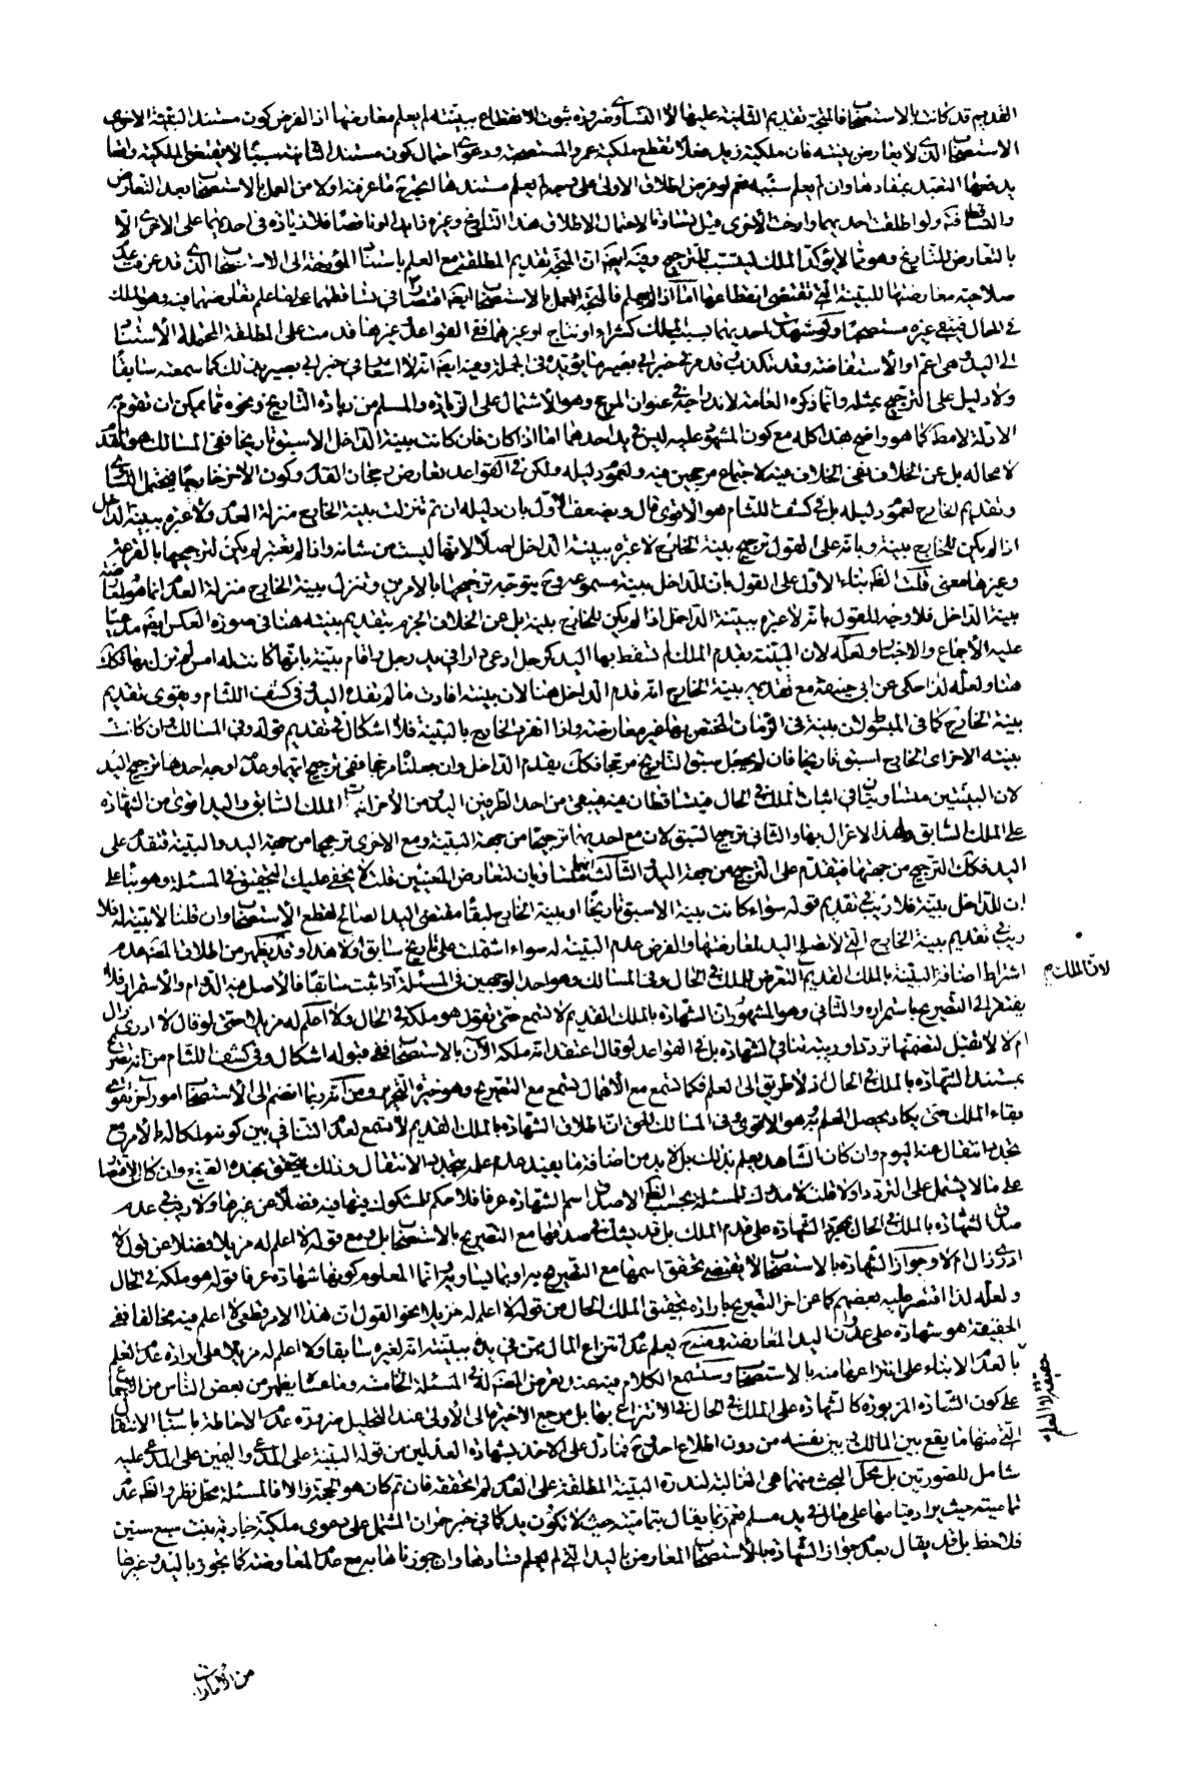 القديم قد كانت بالاستصحاب فالمتجه تقديم الثانية عليها لا التساوي ضرورة ثبوت الانقطاع ببينته لم يعلم معارضها اذ الفرض كون مستند البينة الاخرى
الاستصحاب الذي لا يعارض بينته فان ملكية زيد فعلا تقطع ملكية عمرو المستصحبة ودعوى احتمال كون مستند الثانية سببا لا يقتضي الملكية واقعا
يدفعها التعبد بمفادها وان لم يعلم سببه نعم لو فرض اطلاق الاولى على وجه لم يعلم مستندها اتجه ما عرفته اولا من العمل بالاستصحاب بعد التعارض
والتساقط ولو اطلقت احديهما وارخت الاخرى قيل تساوتا لاحتمال الاطلاق هذا التاريخ وغيره زائدا وناقصا فلا زيادة في احديهما على الاخرى الا
بالتعارض للتاريخ وهو مما لا يؤكد الملك ليتسبب للترجيح وفيه ايضا ان المتجه تقديم المطلقة مع العلم باستناد المؤرخة الى الاستصحاب الذي قد عرفت عدم
صلاحيته معارضتها للبينة التي تقتضي انقطاعها اما اذا لم يعلم فالمتجه العمل بالاستصحاب ايضا اقتصارا في تساقطهما على ما علم تعارضهما فيه وهو الملك
في الحال فيبقى غيره مستصحبا ولو شهدت احديهما بسبب الملك كشراء او نتاج او غيرهما ففي القواعد وغيرها قدمت على المطلقة المحتملة الاستناد
الى اليد وهي اعم والاستفاضة وقد تكذب وقد مر في خبر ابي بصير ما يؤيده في الجملة وفيه ايضا انه لا اشعار في خبر ابي بصير بذلك كما سمعته سابقا
ولا دليل على الترجيح بمثله وانما ذكره العامة لاندراجه في عنوان المرجح وهو الاشتمال على الزيادة والمسلم من زيادة التاريخ ونحوه مما يمكن ان تقوم به
الادلة لا مطلقا كما هو واضح هذا كله مع كون المشهود عليه ليس في يد احدهما اما اذا كان فان كانت بينة الداخل الاسبق تاريخا ففي المسالك هو المقدم
لا محالة بل عن الخلاف نفي الخلاف فيه لاجتماع مرجحين فيه ولعموم دليله ولكن في القواعد تعارض رجحان التقدم وكون الاخر خارجا فيحتمل التساوي
وتقديم الخارج لعموم دليله بل في كشف اللثام هو الاقوى قال ويضعف الاول بان دليله ان تم تنزلت بينة الخارج منزلة العدم ولا عبرة ببينة الداخل
اذا لم يكن للخارج بينة وبانه على القول ترجيح بينة الخارج لا عبرة ببينة الداخل اصلا لانها ليست من شانه واذا لم تعتبر لم يكن لترجيحها بالقرعة
وغيرها معنى قلت الظاهر بناء الاول على القول بان للداخل بينة مسموعة وح يتوجه ترجيحها بالامرين وتنزل بينة الخارج منزلة العدم انما هو لمعارضته
بينة الداخل فلا وجه للقول بانه لا عبرة ببينة الداخل اذا لم يكن للخارج بينة بل عن الخلاف الجزم بتقديم بينته هنا في صورة العكس ايضا مدعيا
عليه الاجماع والاخبار ولعله لان البينة بقدم الملك لم تسقط بها اليد كرجل ادعى دارا في يد رجل واقام بينة بانها كانت له امس لم تزل بها فكك
هنا ولعله لذا حكى عن ابي حنيفة مع تقديمه بينة الخارج انه قدم الداخل هنا لان بينته افادت ما لم تفده اليد وفي كشف اللثام ويقوى تقديم
بينة الخارج كما في المبسوط لان بينته في الزمان المختص بها غير معارضة واذا انفرد الخارج بالبينة فلا اشكال في تقديم قوله وفي المسالك وان كانت
بينته الاخرى الخارج اسبق تاريخا فان لم يجعل سبق التاريخ مرجحا فكك يقدم الداخل وان جعلناه مرجحا ففي ترجيح ايهما وعدمه اوجه احدها ترجيح اليد
لان البينتين متساويتان في اثبات الملك في الحال فيتساقطان فيه فيبقى من احد الطرفين اليد ومن الاخر اثبات الملك السابق واليد اقوى من الشهادة
على الملك السابق ولهذا لا تزال بها والثاني ترجيح السبق لان مع احديهما ترجيحا من جهة البينة ومع الاخرى ترجيحا من جهة اليد والبينة تتقدم على
اليد فكك الترجيح من جهتها فيتقدم على الترجيح من جهة اليد الثالث انهما متساويان لتعارض المعنيين قلت لا يخفى عليك التحقيق في المسئلة وهو بناء على
ان للداخل بينة فلا ريب في تقديم قوله سواء كانت بينة الاسبق تاريخا او بينة الخارج لبقاء مقتضى اليد الصالح لقطع الاستصحاب وان قلنا لا بينة له فلا
ريب في تقديم بينة الخارج التي لا تصلح اليد لمعارضتها والفرض عدم البينة له سواء اشتملت على تاريخ سابق او لا هذا وقد يظهر من اطلاق المتن عدم
اشتراط اضافة البينة بالملك القديم التعرض للملك في الحال وفي المسالك وهو احد الوجهين في المسئلة اذا ثبت سابقا فالاصل فيه الدوام والاستمرار فلا
يفتقر الى التصريح باستمراره والثاني وهو المشهور ان الشهادة بالملك القديم لا تسمع حتى تقول هو ملكه في الحال ولا اعلم له مزيلا حتى لو قال لا ادري زال
ام لا لا تقبل لتضمنها ترددا وريبة تنافي الشهادة بل في القواعد لو قال اعتقد انه ملكه الآن بالاستصحاب ففي قبوله اشكال وفي كشف اللثام من انه تصريح
بمستند الشهادة بالملك في الحال اذ لا طريق الى العلم فكما تسمع مع الاهمال تسمع مع التصريح وهو خيرة التحرير ومن انه ربما انضم الى الاستصحاب امور آخر تقوي
بقاء الملك حتى يكاد يحصل العلم به هو الاقوى وفي المسالك الحق ان اطلاق الشهادة بالملك القديم لا تسمع لعدم التنافي بين كونه ملكا له بالامس مع
تجدد انتقاله عنه اليوم وان كان الشاهد يعلم بذلك بل لا بد من اضافة ما يفيد عدم علمه بتجدد الانتقال وذلك يتحقق بهذه الصيغ وان كان الاقتصار
على ما لا يشتمل على التردد اولا قلت لا مدرك للمسئلة بحسب الظاهر الا صدق اسم الشهادة عرفا فلا حكم للمشكوك فيها فيه فضلا عن غيرها ولا ريب في عدم
صدق الشهادة بالملك في الحال بمجرد الشهادة على قدم الملك بل قد يشك في صدقها مع التصريح بالاستصحاب بل ومع قوله لا اعلم له مزيلا فضلا عن قول لا
ادري زال ام لا وجواز الشهادة بالاستصحاب لا يقتضي تحقق اسمها مع التصريح به او بما يساويه انما المعلوم كونها شهادة عرفا قوله هو ملكه في الحال
ولعله لذا اقتصر عليه بعضهم كما عن اخر التصريح بارادة تحقيق الملك الحال من قوله لا اعلم له مزيلا نحو القول ان هذا الامر قطعي لا اعلم فيه مخالفا ففي
الحقيقة هو شهادة على عدوان اليد المعارضة ومنه يعلم عدم انتزاع المال ممن في يده ببينته انه لغيره سابقا ولا اعلم له مزيلا على ارادة عدم العلم
بالعدم الا بناء على انتزاعها منه بالاستصحاب وستسمع الكلام فيه عند تعرض المصنف له في المسئلة الخامسة وما عساه يظهر من بعض الناس من الاجماع
على كون الشهادة المزبورة كالشهادة على الملك في الحال في الانتزاع بها بل مرجع الاخيرة الى الاولى عند التحليل ضرورة عدم الاحاطة باسباب الانتقال
التي منها ما يقع بين المالك في بين نفسه من دون اطلاع احد وح فما دل على الاخذ بشهادة العدلين من قوله البينة على المدعي واليمين على المدعى عليه
شامل للصورتين بل محل البحث منهما هي الغالبة لندرة البينة المطلقة على العدم لم نتحققه فان تم كان هو الحجة والا فالمسئلة محل نظر والظاهر عدم
تماميته حيث يراد قيامها على مال في يد مسلم نعم ربما يقال بتماميته حيث لا تكون يد كما في خبر حمران المشتمل على دعوى ملكية جارية بنت سبع سنين
فلاحظ بل قد يقال بعدم جواز الشهادة بالاستصحاب المعارض باليد التي لم يعلم فسادها وان جوزناها به مع عدم المعارضة كما يجوز باليد وغيرها
لان الملك م
حقيقة لا العلم
من الامارات